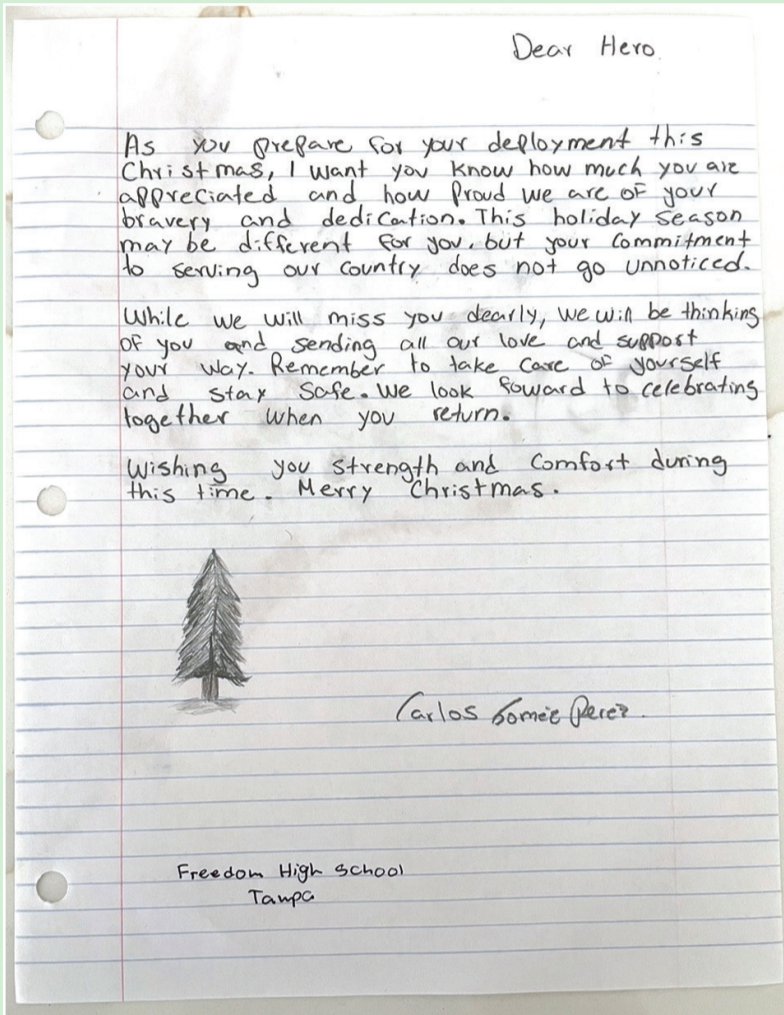 Dear Hero.
As you prepare for your deployment this
Christmas, I want you know how much you are
appreciated and how proud we are of your
bravery and dedication. This holiday season
may be different for you, but your commitment
to serving our country does not go unnoticed.
While we will miss you dearly, we will be thinking
of you and sending all our love and support
your way. Remember to take care of yourself
and stay safe. We look foward to celebrating
together when you return.
Wishing you strength and comfort during
this time. Merry Christmas.
Carlos Gomez Perez.
Freedom High School
Tampa